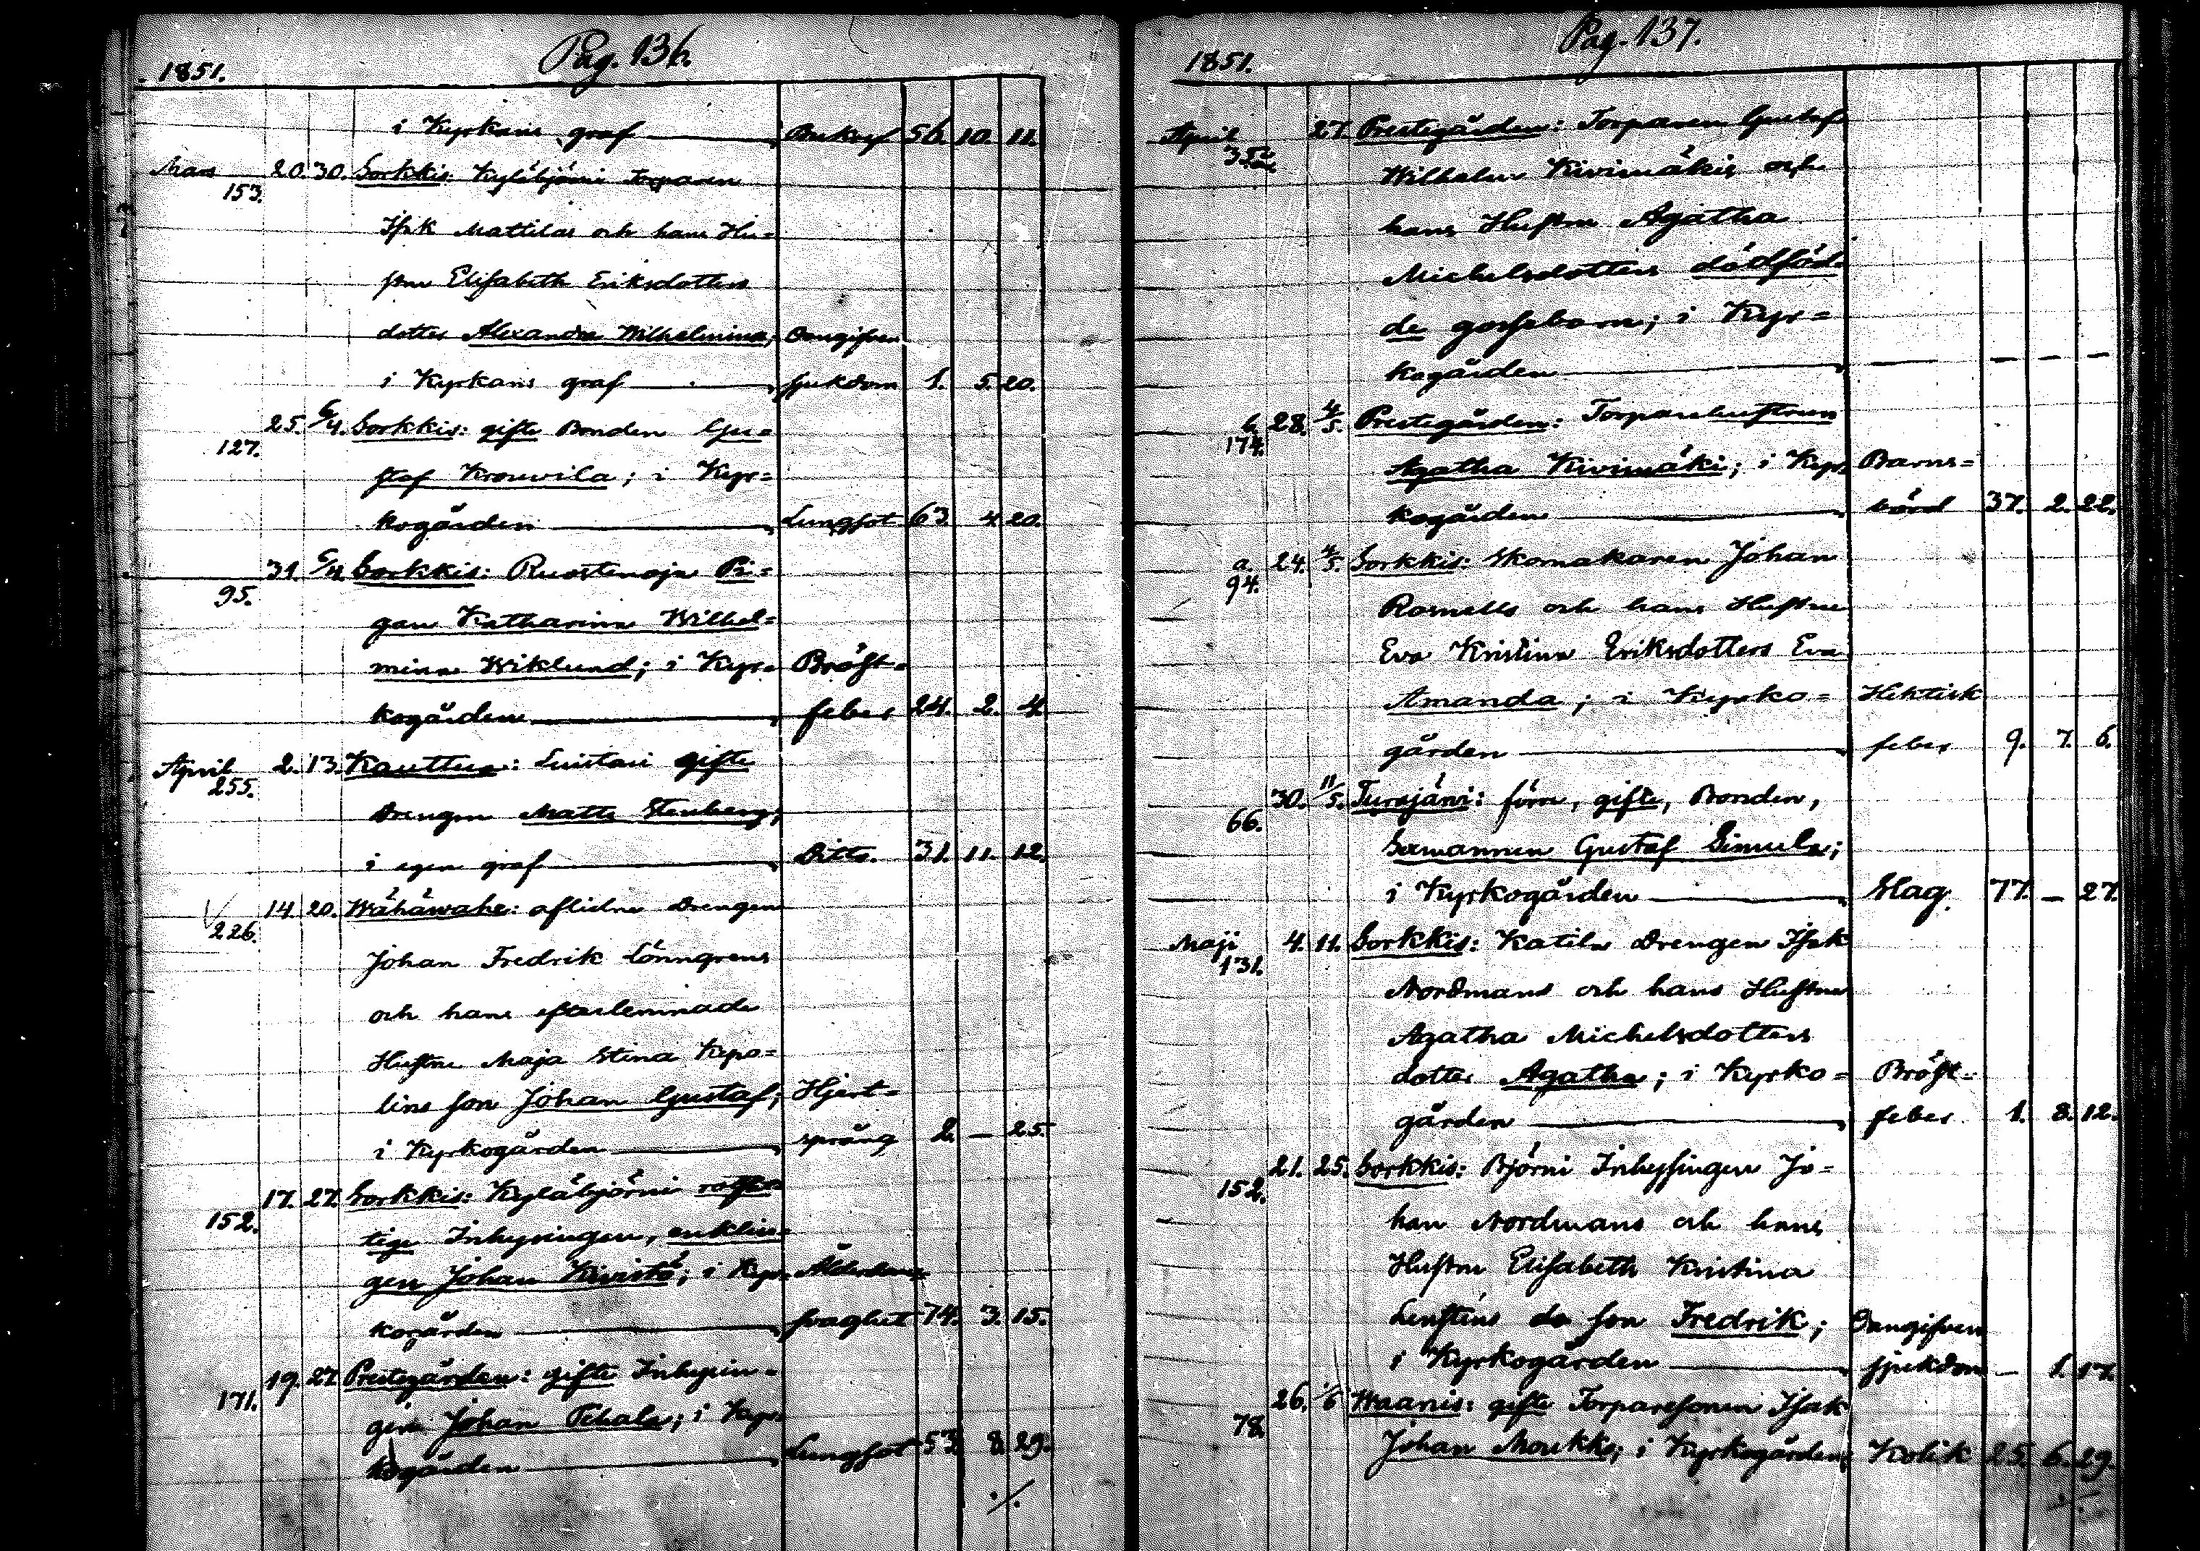 Pag. 136.
1851.
i Kyrkans graf 56. 10. 11.
Mars 20. 30. Sorkkis: Kyläbjörni Torparen
153.
Isak Mattilas och hans Hu=
stru Elisabeth Eriksdotters
dotter Alexandra Wilhelmina; Oangifven
i Kyrkans graf sjukdom 1. 5. 20.
25. 6/4. Sorkkis: gifte Bonden Gu=
127.
staf Krouvila; i Kyr=
kogården Lungsot 63. 4 20.
31 6/4 Sorkkis: Ruostenoja Pi=
95.
gan Katharina Wilhel=
mina Wiklund; i Kyr= Bröst=
kogården feber 24. 2. 4.
April 2. 13. Kauttua: Luistari gifte
255.
Drengen Matts Stenberg;
i egen graf Ditto. 31. 11. 12.
14. 20. Wähäwahe: aflidne Drengen
226.
Johan Fredrik Lönngrens
och hans efterlemnade
Hustru Maja Stina Kapo=
lins son Johan Gustaf; Hjert=
i Kyrkogården språng 2. — 25.
17. 27. Sorkkis: Kyläbjörni rotfat=
152.
tige Inhysingen, enklin=
gen Johan Kivistö; i Kyr= Ålderdoms=
kogården svaghet 74. 3. 15.
19. 27. Prestegården: gifte Inhysin=
171.
gen Johan Tehala; i Kyr=
kogården Lungsot 53. 8. 29.
./.
Pag. 137.
1851.
April 27. Prestegården: Torparen Gustaf
Wilhelm Kivimäkis och
hans Hustru Agatha
Michelsdotters dödföd=
de gossebarn; i Kyr=
kogården — — —
b. 28. 4/5. Prestegården: Torparehustrun
174.
Agatha Kivimäki; i Kyr= Barns=
kogården börd 37. 2. 22.
a. 24. 4/5. Sorkkis: Skomakaren Johan
94.
Rosnells och hans Hustru
Eva Kristina Eriksdotters Eva
Amanda; i Kyrko= Hektisk
gården feber 9. 7. 6.
30. 11/5. Turajärvi: förre, gifte, Bonden,
66.
Sexmannen Gustaf Simula;
i Kyrkogården Slag. 77. — 27.
Maji 4. 11. Sorkkis: Katila Drengen Isak
131.
Nordmans och hans Hustru
Agatha Michelsdotters
dotter Agatha; i Kyrko= Bröst=
gården feber 1. 8. 12.
21. 25. Sorkkis: Björni Inhysingen Jo=
152.
han Nordmans och hans
Hustru Elisabeth Kristina
do son Fredrik; Oangifven
i Kyrkogården sjukdom — 1. 17.
26. 1/6 Waanis: gifte Torparesonen Isak
78.
Johan Moukko; i Kyrkogården; Kolik 25. 6. 29.